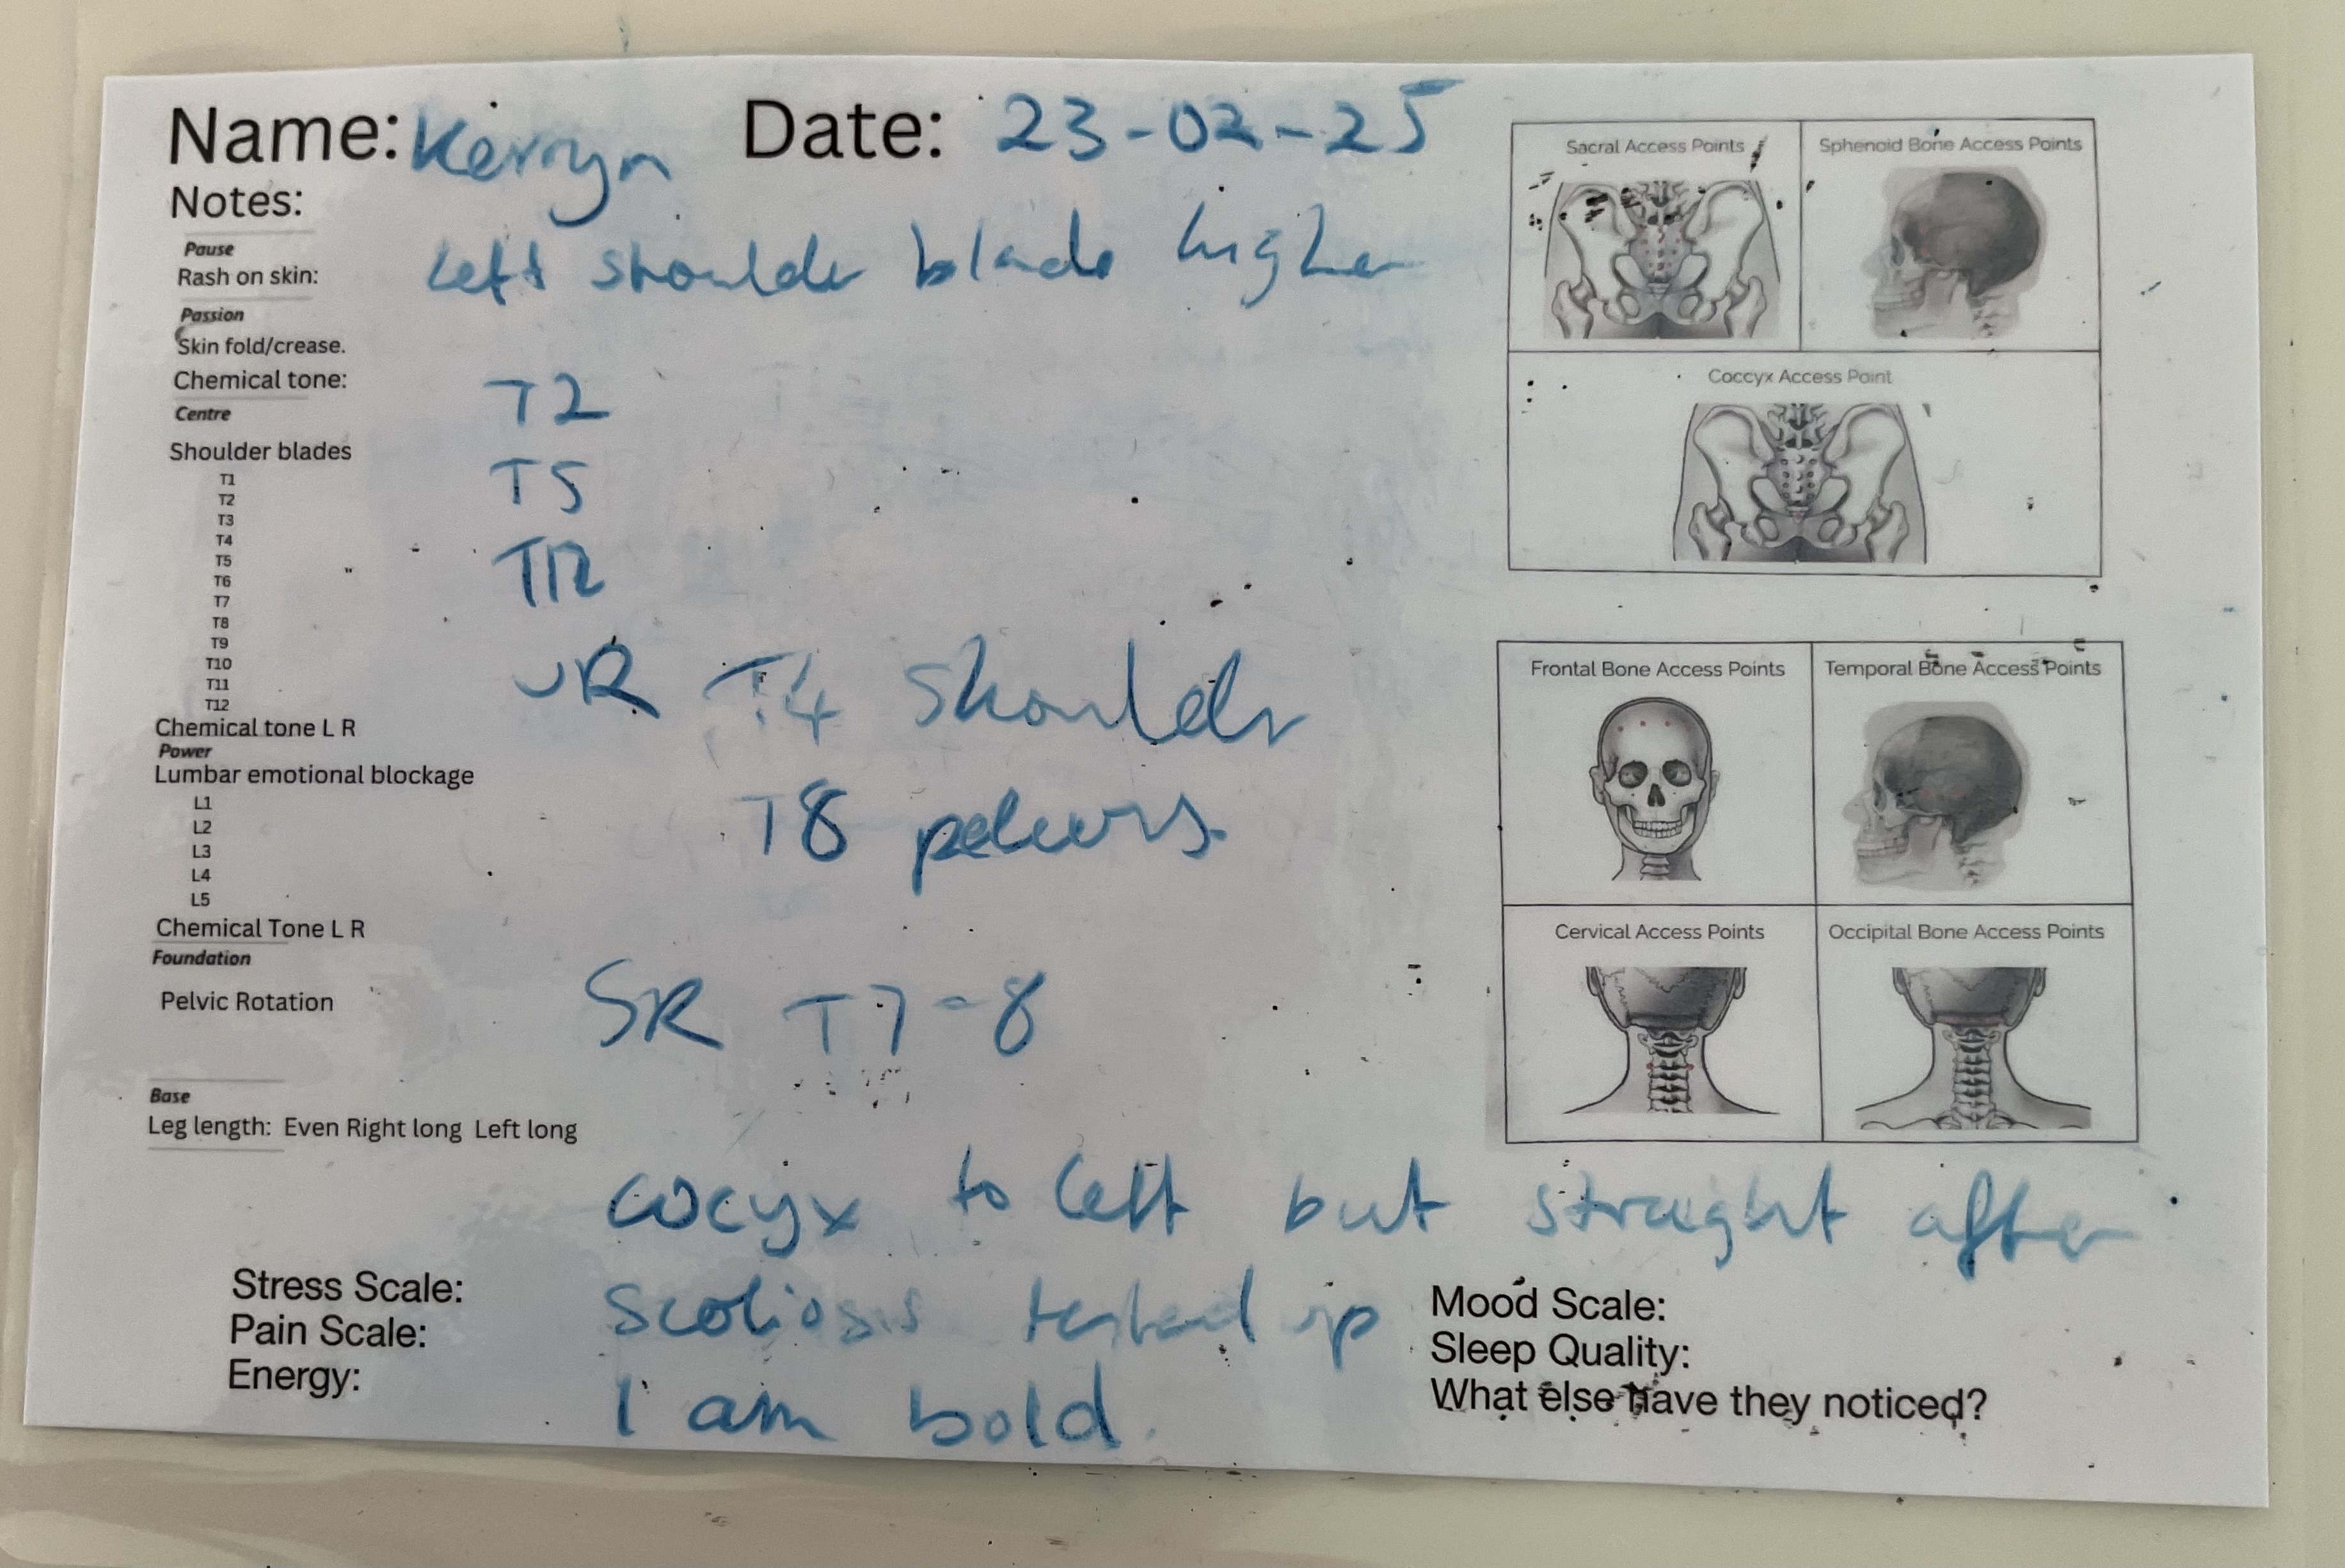 Name: Kerryn Date: 23-02-25
Notes:
Pause
Rash on skin: Left shoulder blade higher
Passion
Skin fold/crease.
Chemical tone: T2
Centre
Shoulder blades
T1
T2
T3
T4
T5
T6
T7
T8
T9
T10
T11
T12
T5
T12
UR T4 Shoulder
Chemical tone L R
Power
Lumbar emotional blockage
L1
L2
L3
L4
L5
T8
Chemical Tone L R
Foundation
Pelvic Rotation SR T7-8
Base
Leg length: Even Right long Left long
cocyx to left but straight after
Stress Scale: Scoliosis tested up
Pain Scale:
Energy: I am bold.
Mood Scale:
Sleep Quality:
What else have they noticed?
Sacral Access Points
Sphenoid Bone Access Points
Coccyx Access Point
Frontal Bone Access Points
Temporal Bone Access Points
Cervical Access Points
Occipital Bone Access Points